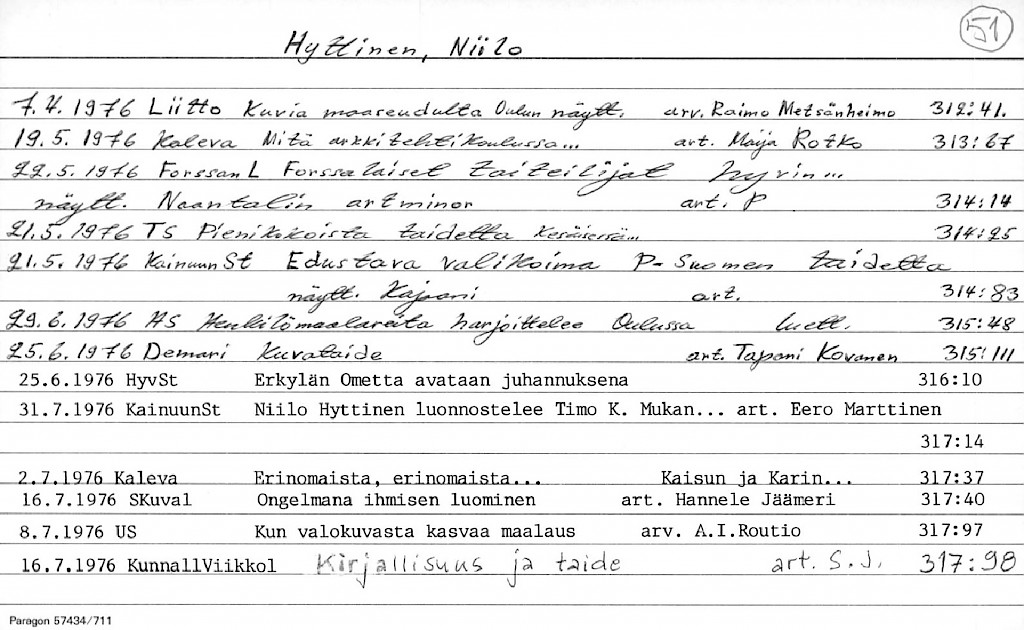 51
Hyttinen, Niilo
7.4.1976 Liitto Kuvia maaseudulta Oulun näytt. arv. Raimo Metsänheimo 312:41.
19.5.1976 Kaleva Mitä arkkitehtikoulussa... art. Maija Rotko 313:67
22.5.1976 Forssan L Forssalaiset taiteilijat hyvin...
näytt. Naantalin artminor art. P 314:14
21.5.1976 TS Pienikokoista taidetta kesäisessä... 314:25
21.5.1976 KainuunSt Edustava valikoima P-Suomen taidetta
näytt. Kajaani art. 314:83
29.6.1976 HS Henkilömaalareita harjoittelee Oulussa luett. 315:48
25.6.1976 Demari Kuvataide art. Tapani Kovanen 315:111
25.6.1976 HyvSt Erkylän Ometta avataan juhannuksena 316:10
31.7.1976 KainuunSt Niilo Hyttinen luonnostelee Timo K. Mukan... art. Eero Marttinen
317:14
2.7.1976 Kaleva Erinomaista, erinomaista... Kaisun ja Karin... 317:37
16.7.1976 SKuval Ongelmana ihmisen luominen art. Hannele Jäämeri 317:40
8.7.1976 US Kun valokuvasta kasvaa maalaus arv. A.I.Routio 317:97
16.7.1976 KunnallViikkol Kirjallisuus ja taide art. S.J. 317:98
Paragon 57434/711